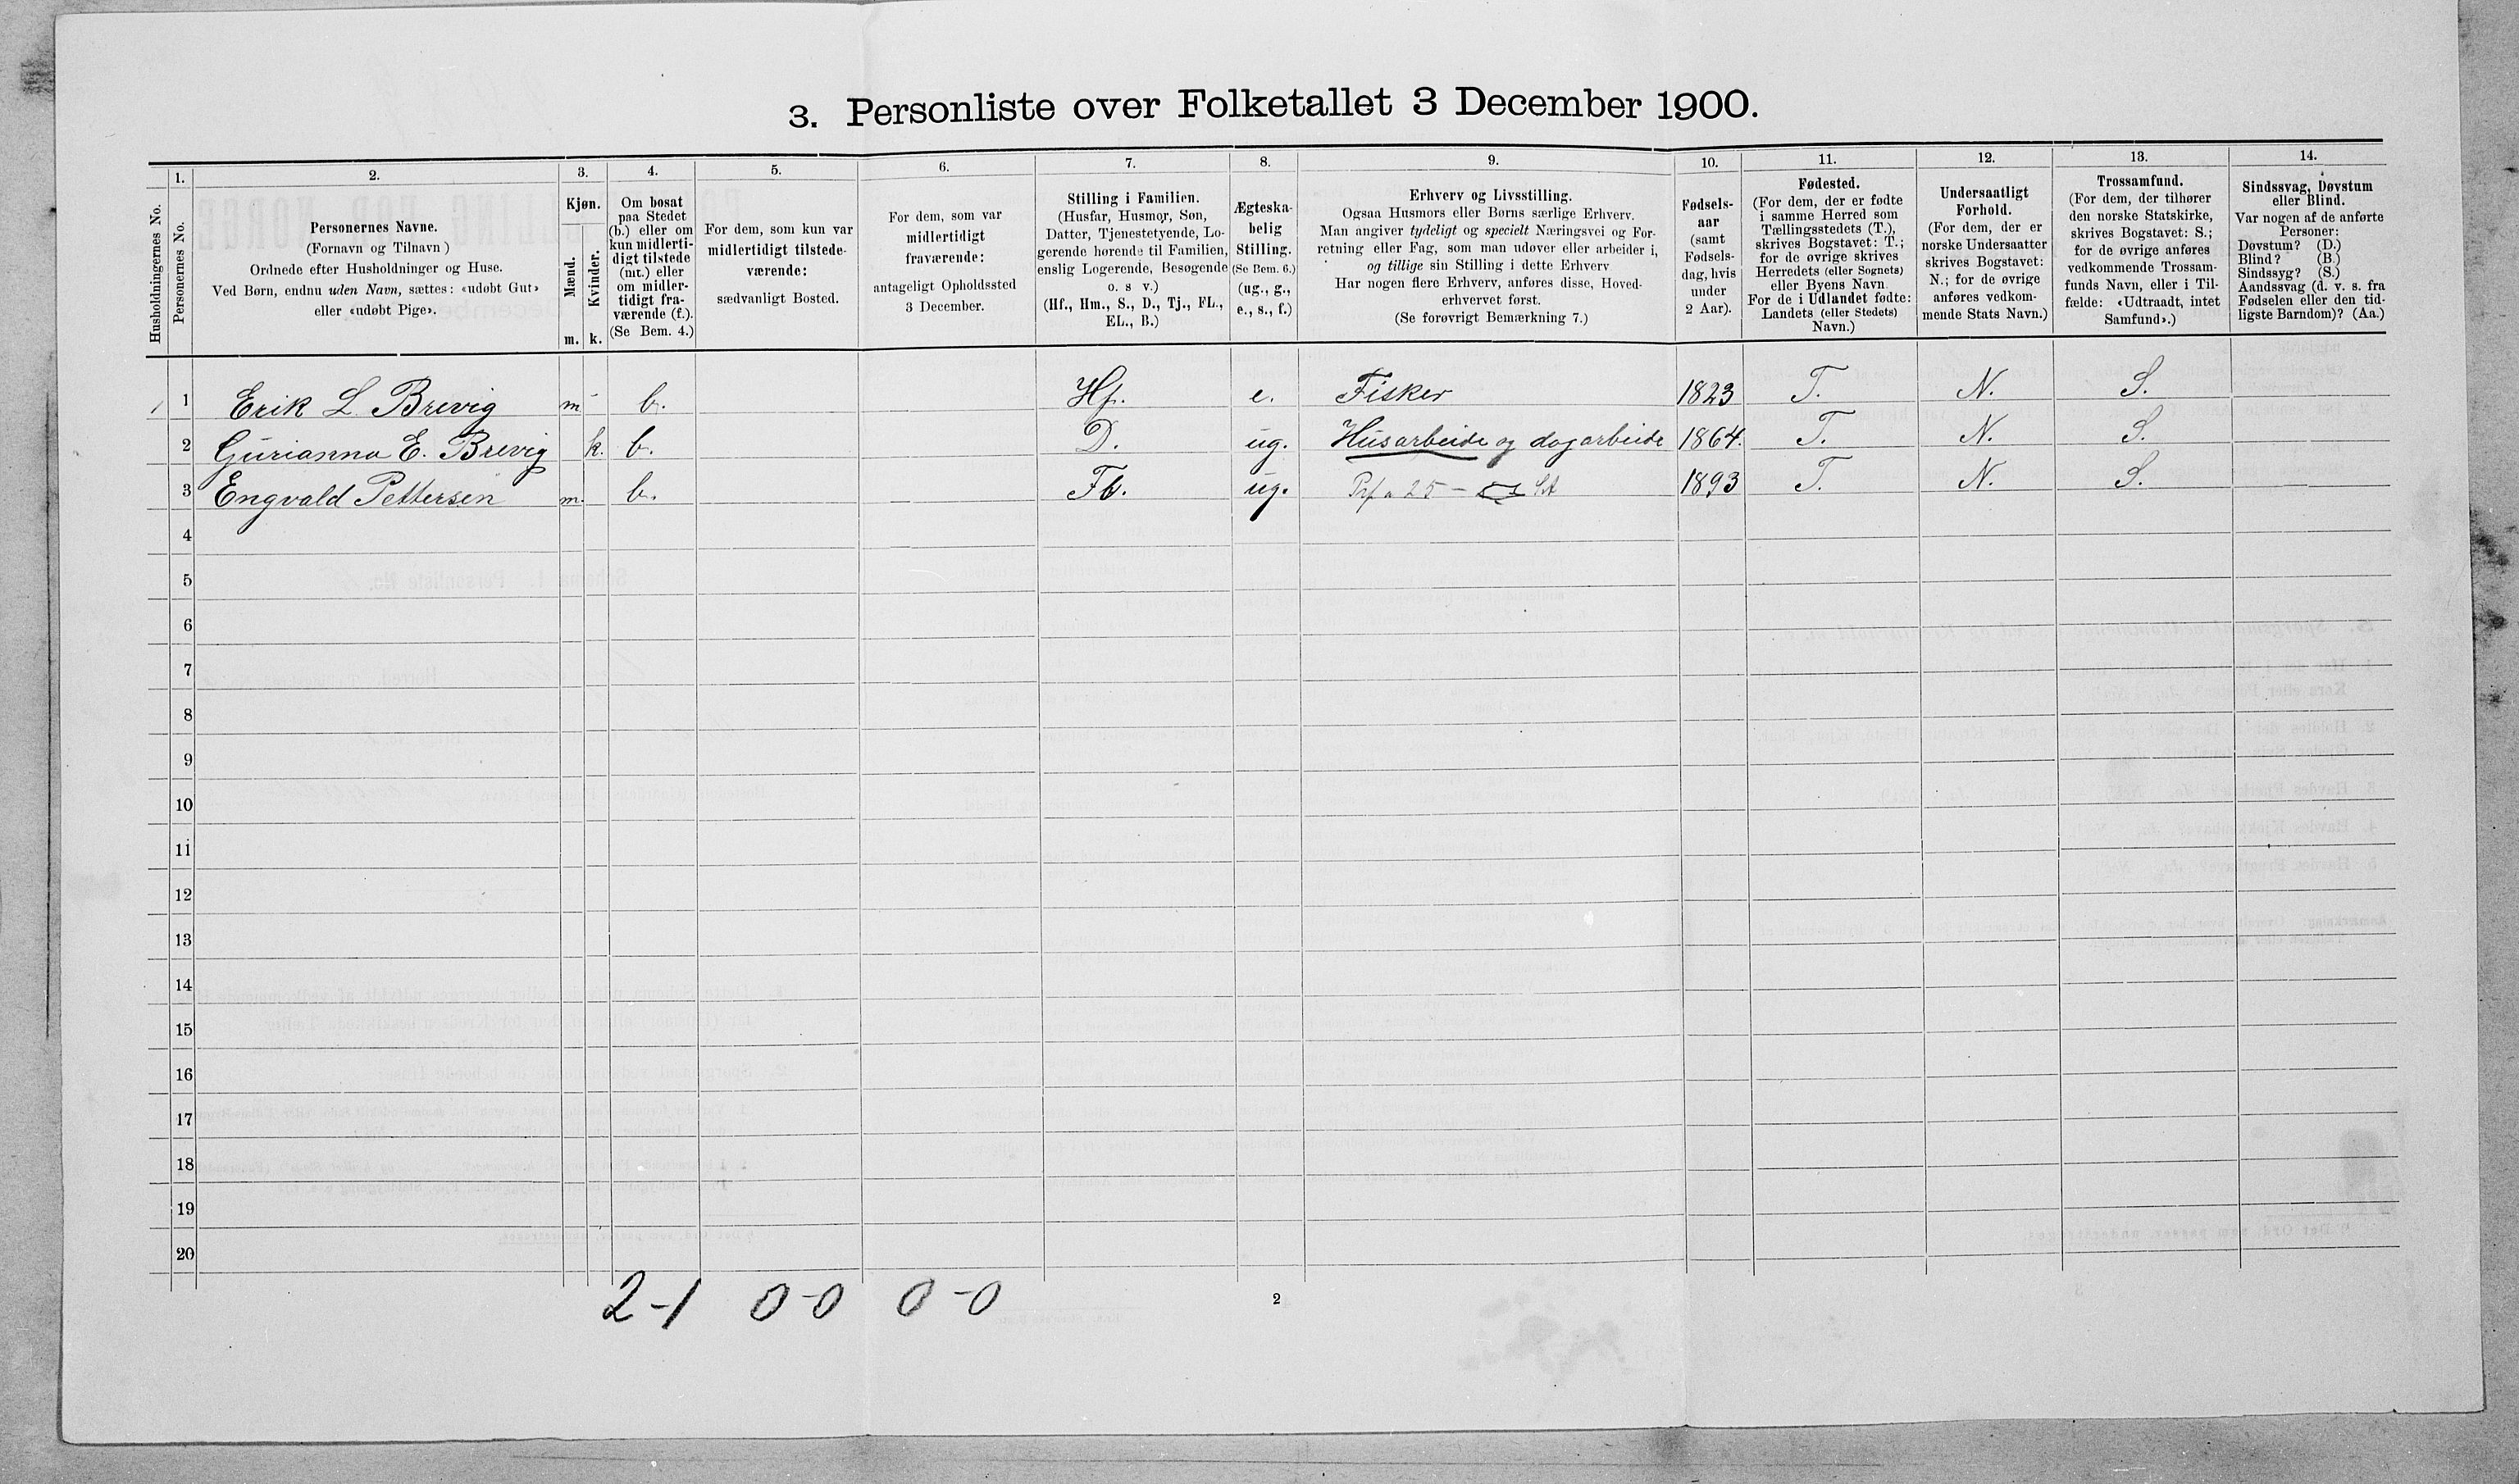 3. Personliste over Folketallet 3 December 1900.
Husholdningernes No.
1.
Personernes No.
2.
Personernes Navne.
(Fornavn og Tilnavn)
Ordnede efter Husholdninger og Huse.
Ved Børn, endnu uden Navn, sættes: «udøbt Gut»
eller «udøbt Pige».
3.
Kjøn.
Mænd.
Kvinder.
m. k.
4.
Om bosat
paa Stedet
(b.) eller om
kun midlerti-
digt tilstede
(mt.) eller
om midler-
tidigt fra-
værende (f.).
(Se Bem. 4.)
5.
For dem, som kun var
midlertidigt tilstede-
værende:
sædvanligt Bosted.
6.
For dem, som var
midlertidigt
fraværende:
antageligt Opholdssted
3 December.
7.
Stilling i Familien.
(Husfar, Husmor, Søn,
Datter, Tjenestetyende, Lo-
gerende hørende til Familien,
enslig Logerende, Besøgende
o. s v.)
(Hf., Hm., S., D., Tj., FL.,
EL., B.)
8.
Ægteska-
belig
Stilling.
(Se Bem. 6.)
(ug., g.,
e., s., f.)
9.
Erhverv og Livsstilling.
Ogsaa Husmors eller Børns særlige Erhverv.
Man angiver tydeligt og specielt Næringsvei og For-
retning eller Fag, som man udøver eller arbeider i,
og tillige sin Stilling i dette Erhverv
Har nogen flere Erhverv, anføres disse, Hoved-
erhvervet først.
(Se forøvrigt Bemærkning 7.)
10.
Fødsels-
aar
(samt
Fødsels-
dag, hvis
under
2 Aar).
11.
Fødested.
(For dem, der er fødte
i samme Herred som
Tællingsstedets (T.),
skrives Bogstavet: T.;
for de øvrige skrives
Herredets (eller Sognets)
eller Byens Navn.
For de i Udlandet fødte:
Landets (eller Stedets)
Navn.)
12.
Undersaatligt
Forhold.
(For dem, der er
norske Undersaatter
skrives Bogstavet:
N.; for de øvrige
anføres vedkom-
mende Stats Navn.)
13.
Trossamfund.
(For dem, der tilhører
den norske Statskirke,
skrives Bogstavet: S.;
for de øvrige anføres
vedkommende Trossam-
funds Navn, eller i Til-
fælde: «Udtraadt, intet
Samfund».)
14.
Sindssvag, Døvstum
eller Blind.
Var nogen af de anførte
Personer:
Døvstum? (D.)
Blind? (B.)
Sindssyg? (S.)
Aandssvag (d. v. s. fra
Fødselen eller den tid-
ligste Barndom)? (Aa.)
1 1 Erik L Brevig m b. Hf. e. Fisker 1823 T. N. S.
2 Gurianna E. Brevig k. b. D. ug. Husarbeide og dagarbeide 1864. T. N. S.
3 Engvald Pettersen m. b. Fb. ug. 25 - 1893 T. N. S.
4
5
6
7
8
9
10
11
12
13
14
15
16
17
18
19
20
2-1 0-0 0-0
2